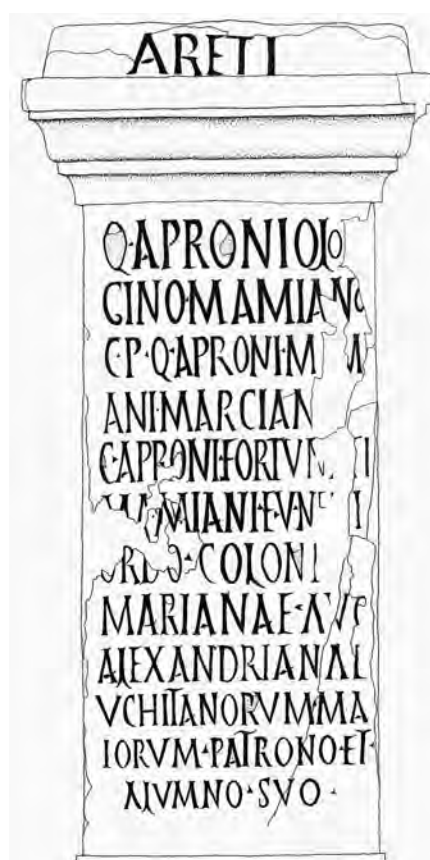 ARETI
Q·APRONIOLO
GINO·MAMIANO
C·P·Q·APRONI·M M
ANI·MARCIAN
C·APRONI·FORTVN TI
MAMIANI·F·VN I
ORDO·COLONI
MARIANAE·AVG
ALEXANDRIANAE
VCHITANORVM·MA
IORVM·PATRONO·ET·
ALVMNO·SVO·